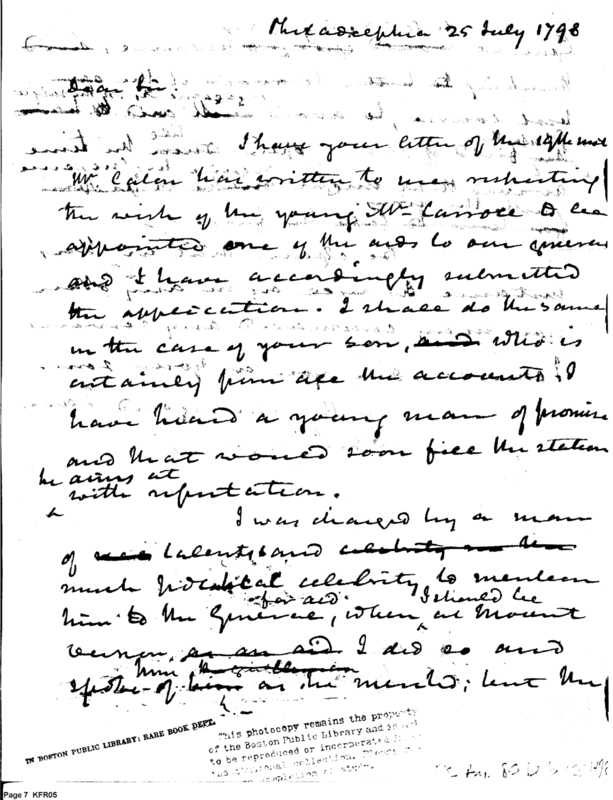 Philadelphia 25 July 1798
Dear Sir.
I have your letter of the 19th inst
Mr. Caton has written to me respecting
the wish of the young Mr. Carroll to be
appointed one of the aids to our general
and I have accordingly submitted
the application. I shall do the same
in the case of your son, and who is
certainly from all the accounts, I
have heard a young man of promise
and that would soon fill the station
he aims at
with reputation.
I was charged by a man
of talents and celebrity
much political celebrity to mention
for aid. I should be
him to the General, when at Mount
Vernon, as an aid I did so and
him
spoke of him as he merited; but the
IN BOSTON PUBLIC LIBRARY: RARE BOOK DEPT.
This photocopy remains the property
of the Boston Public Library and is
to be reproduced or incorporated
collection.
Page 7 KFR05